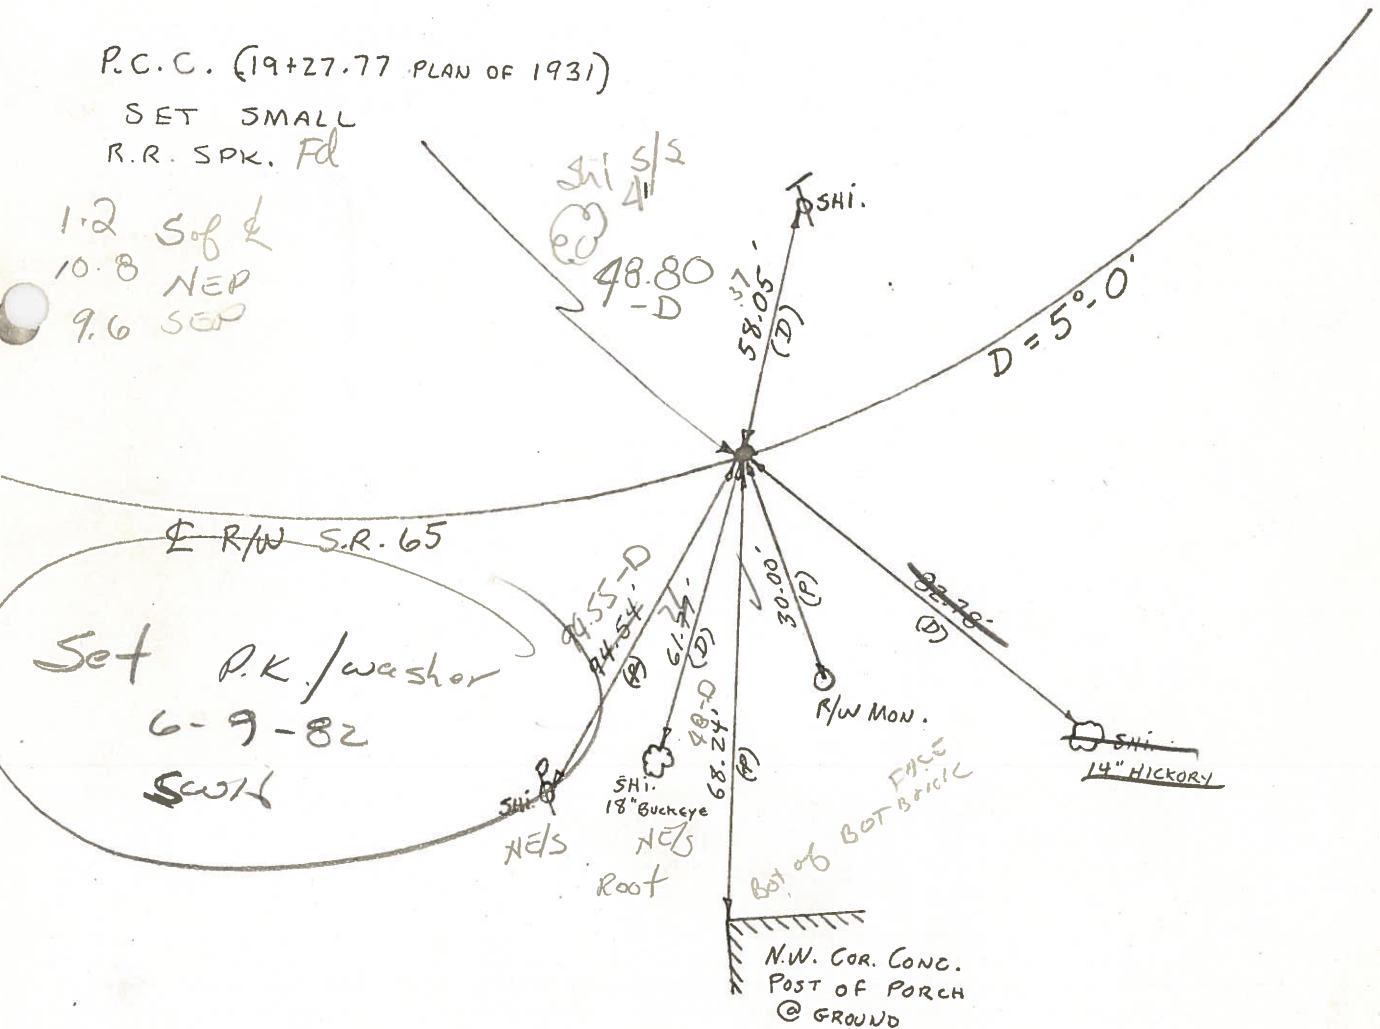 P.C.C. (19+27.77 PLAN OF 1931)
SET SMALL
R.R. SPK. Fd
1.2 S of ℄
10.8 NEP
9.6 SEP
Shi S/S
4"
48.80
-D
SHI.
.37
58.05'
(D)
D = 5°-0'
℄ R/W S.R. 65
Set P.K./washer
6-9-82
94.55-D
94.54'
61.57'
(D)
30.00'
(P)
82.78'
(D)
48-D
68.24'
(P)
R/W MON.
SHI.
14" HICKORY
SHI.
NE/S
SHI.
18" BUCKEYE
NE/S
Root
FACE
Bot of BOT Brick
N.W. COR. CONC.
POST OF PORCH
@ GROUND